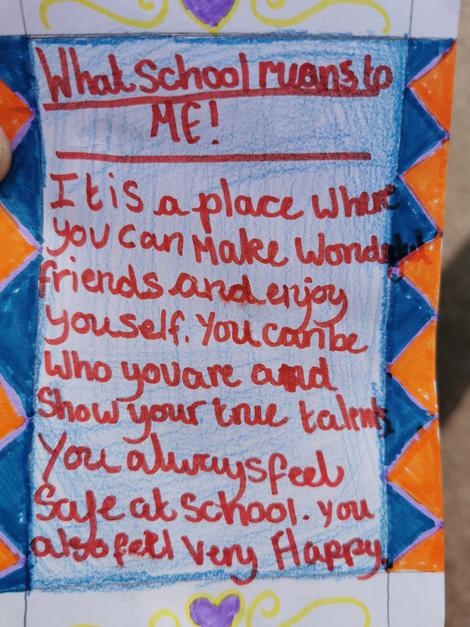 What School means to
ME!
It is a place where
you can Make Wonderful
friends and enjoy
youself. You can be
Who you are and
Show your true talents
You always feel
Safe at School. you
also feel Very Happy.